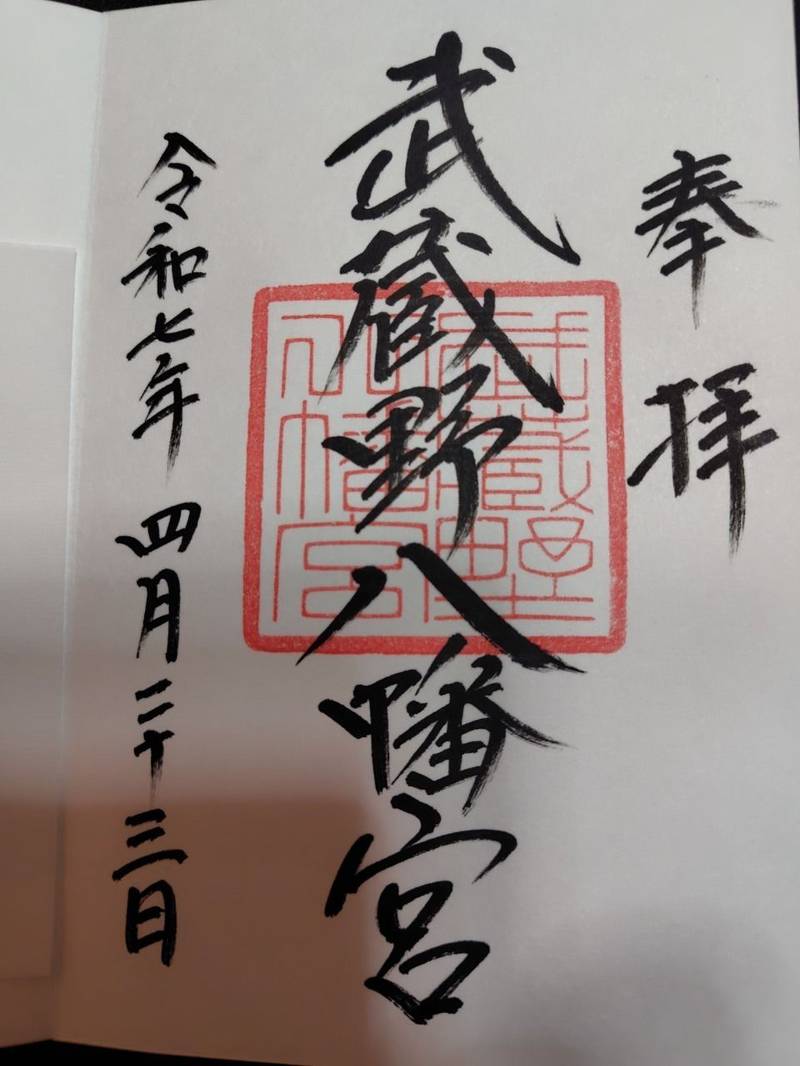 奉拝
武蔵野八幡宮
武蔵野
八幡宮
令和七年四月二十三日